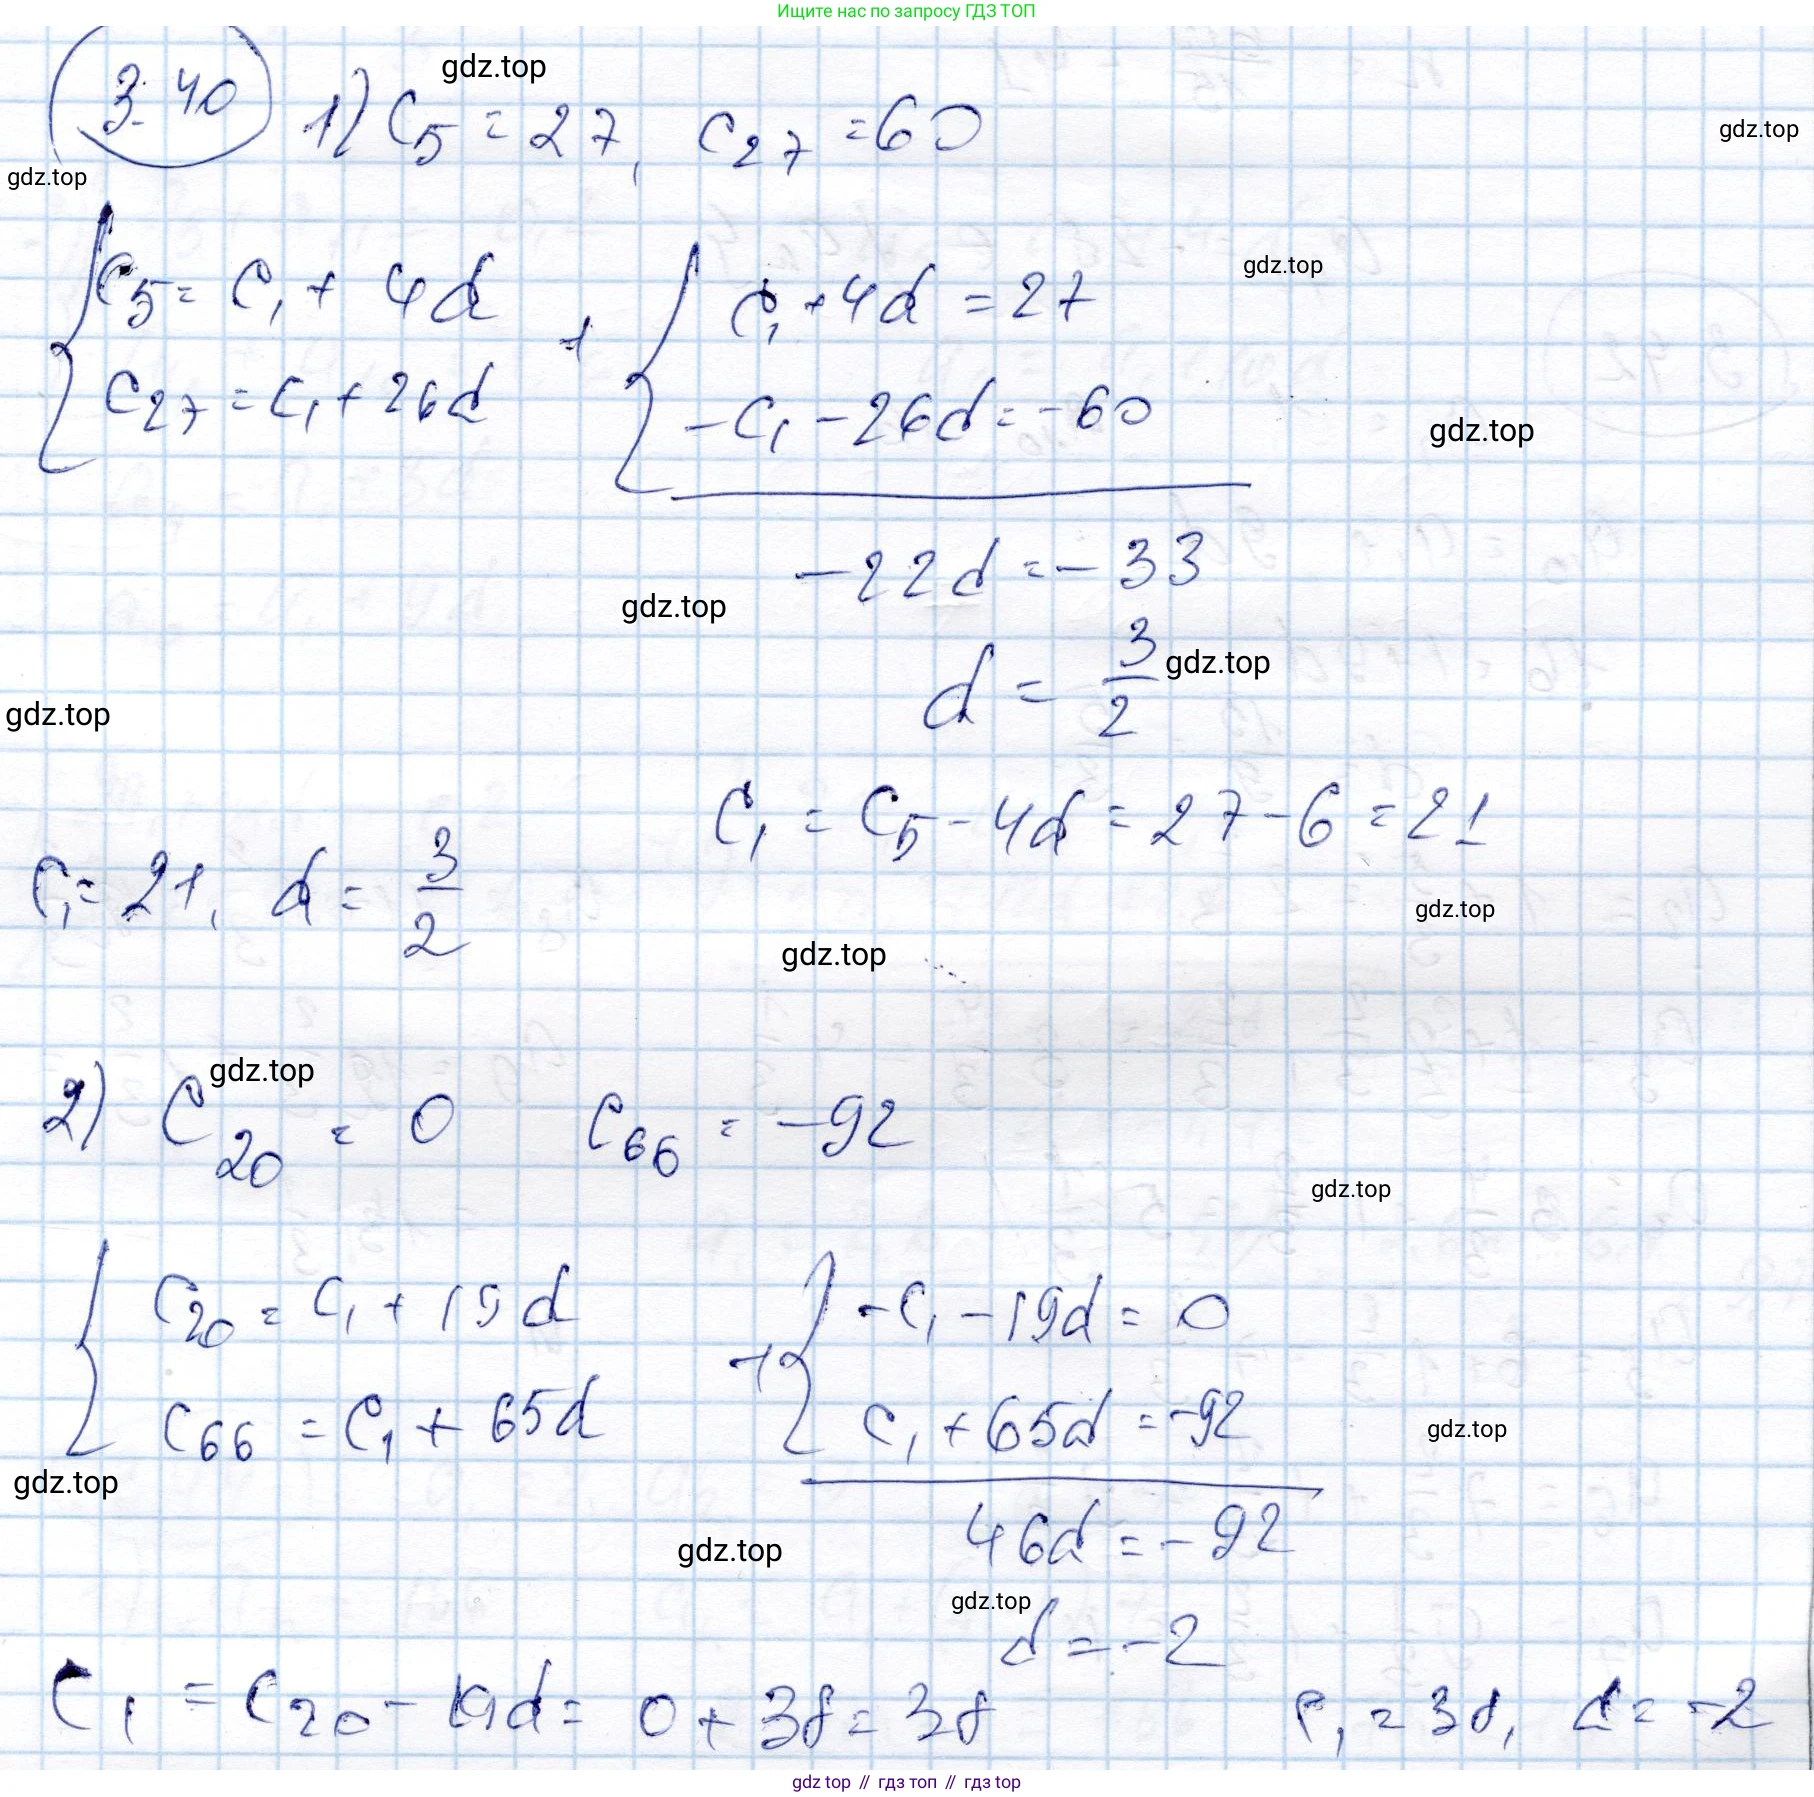 Ищите нас по запросу ГДЗ ТОП
3.40 1) C₅ = 27, C₂₇ = 60
gdz.top
gdz.top
gdz.top
{ C₅ = C₁ + 4d
C₂₇ = C₁ + 26d
+ { C₁ + 4d = 27
-C₁ - 26d = -60
gdz.top
gdz.top
-22d = -33
gdz.top
d = 3/2
gdz.top
gdz.top
C₁ = C₅ - 4d = 27 - 6 = 21
C₁ = 21, d = 3/2
gdz.top
gdz.top
gdz.top
2) C₂₀ = 0 C₆₆ = -92
gdz.top
{ C₂₀ = C₁ + 19d
C₆₆ = C₁ + 65d
+ { -C₁ - 19d = 0
C₁ + 65d = -92
gdz.top
gdz.top
46d = -92
gdz.top
gdz.top
d = -2
C₁ = C₂₀ - 19d = 0 + 38 = 38 C₁ = 38, d = -2
gdz top // гдз топ // гдз top